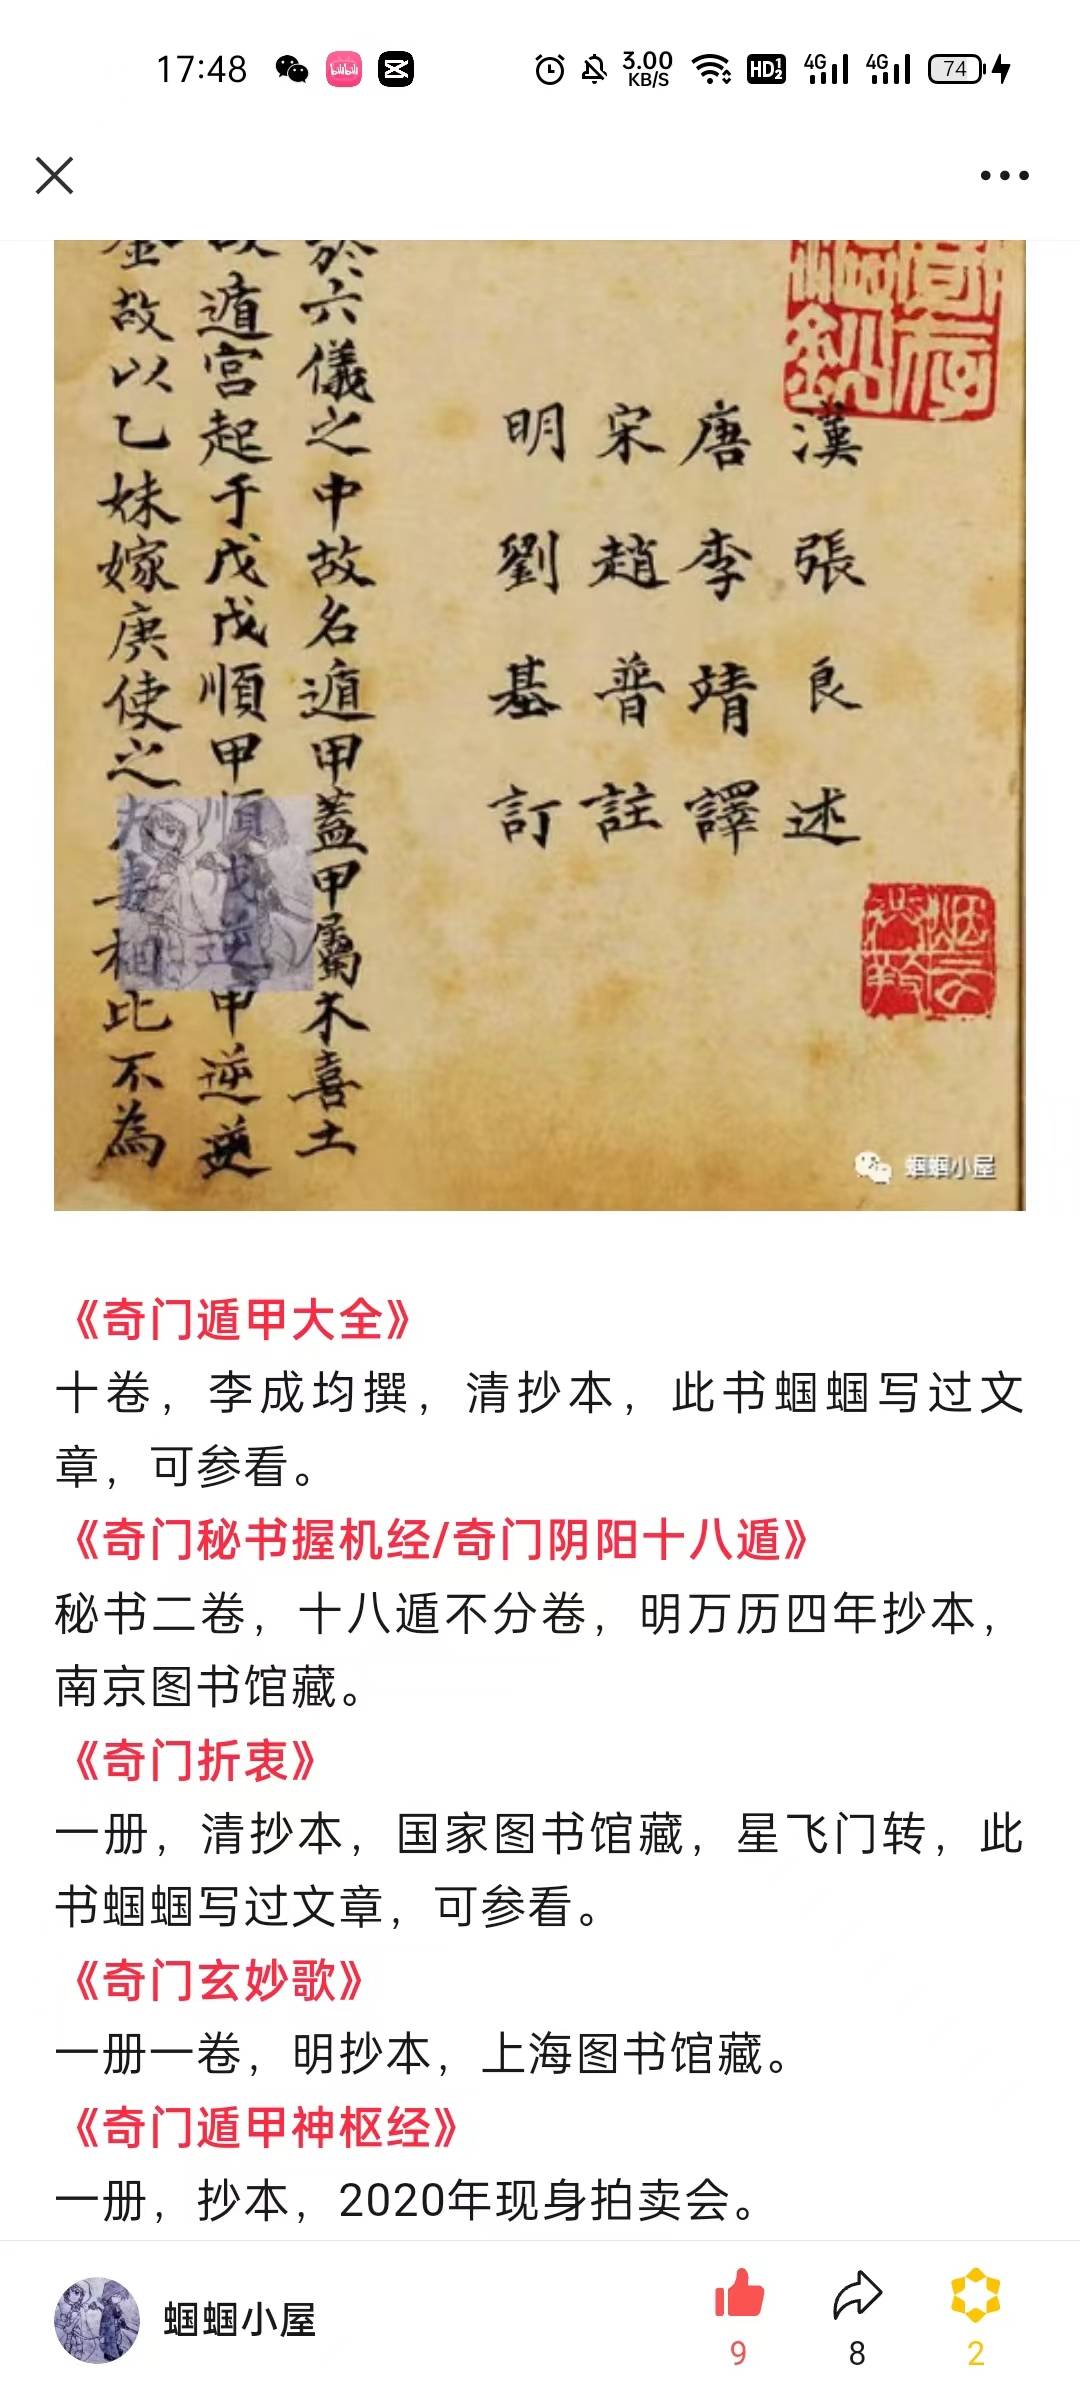 17:48
3.00
KB/S
HD
4G
4G
74
漢張良述
唐李靖譯
宋趙普註
明劉基訂
於六儀之中故名遁甲蓋甲屬木喜土
故遁宮起于戊戊順甲順戊逆甲逆逆
金故以乙妹嫁庚使之夫妻相比不為
蝈蝈小屋
《奇门遁甲大全》
十卷，李成均撰，清抄本，此书蝈蝈写过文
章，可参看。
《奇门秘书握机经/奇门阴阳十八遁》
秘书二卷，十八遁不分卷，明万历四年抄本，
南京图书馆藏。
《奇门折衷》
一册，清抄本，国家图书馆藏，星飞门转，此
书蝈蝈写过文章，可参看。
《奇门玄妙歌》
一册一卷，明抄本，上海图书馆藏。
《奇门遁甲神枢经》
一册，抄本，2020年现身拍卖会。
蝈蝈小屋
9
8
2